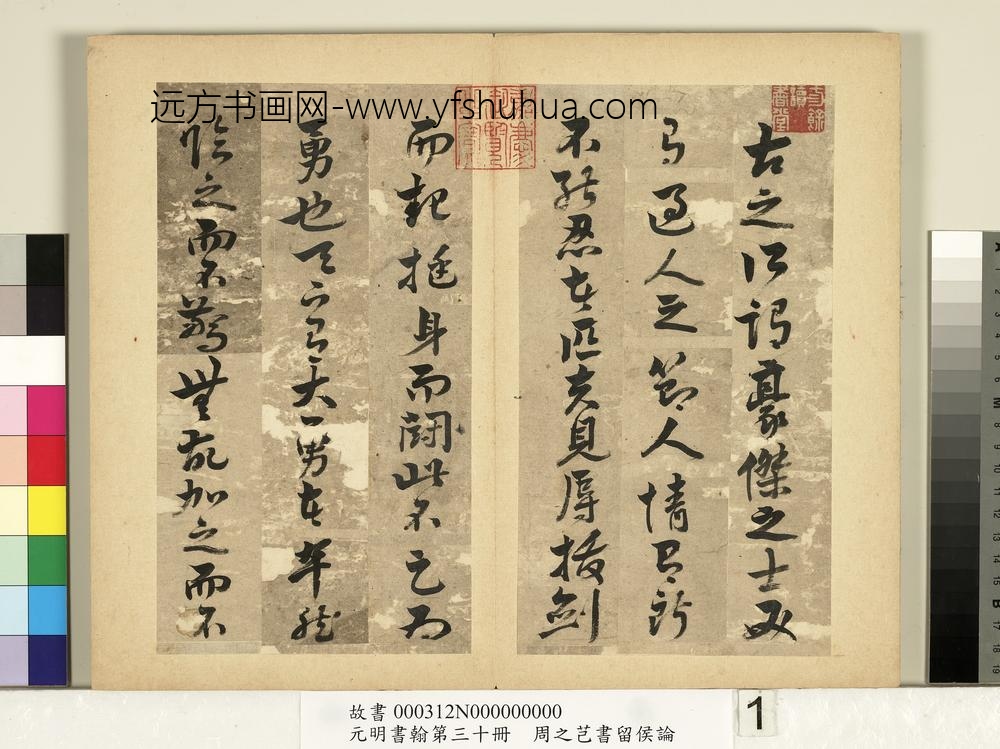 远方书画网-www.yfshuhua.com
古之所謂豪傑之士必
有過人之節人情有所
不能忍者匹夫見辱拔劍
而起挺身而鬭此不足為
勇也天下有大勇者卒然
臨之而不驚無故加之而不
故書 000312N000000000
元明書翰第三十冊　周之芑書留侯論
1